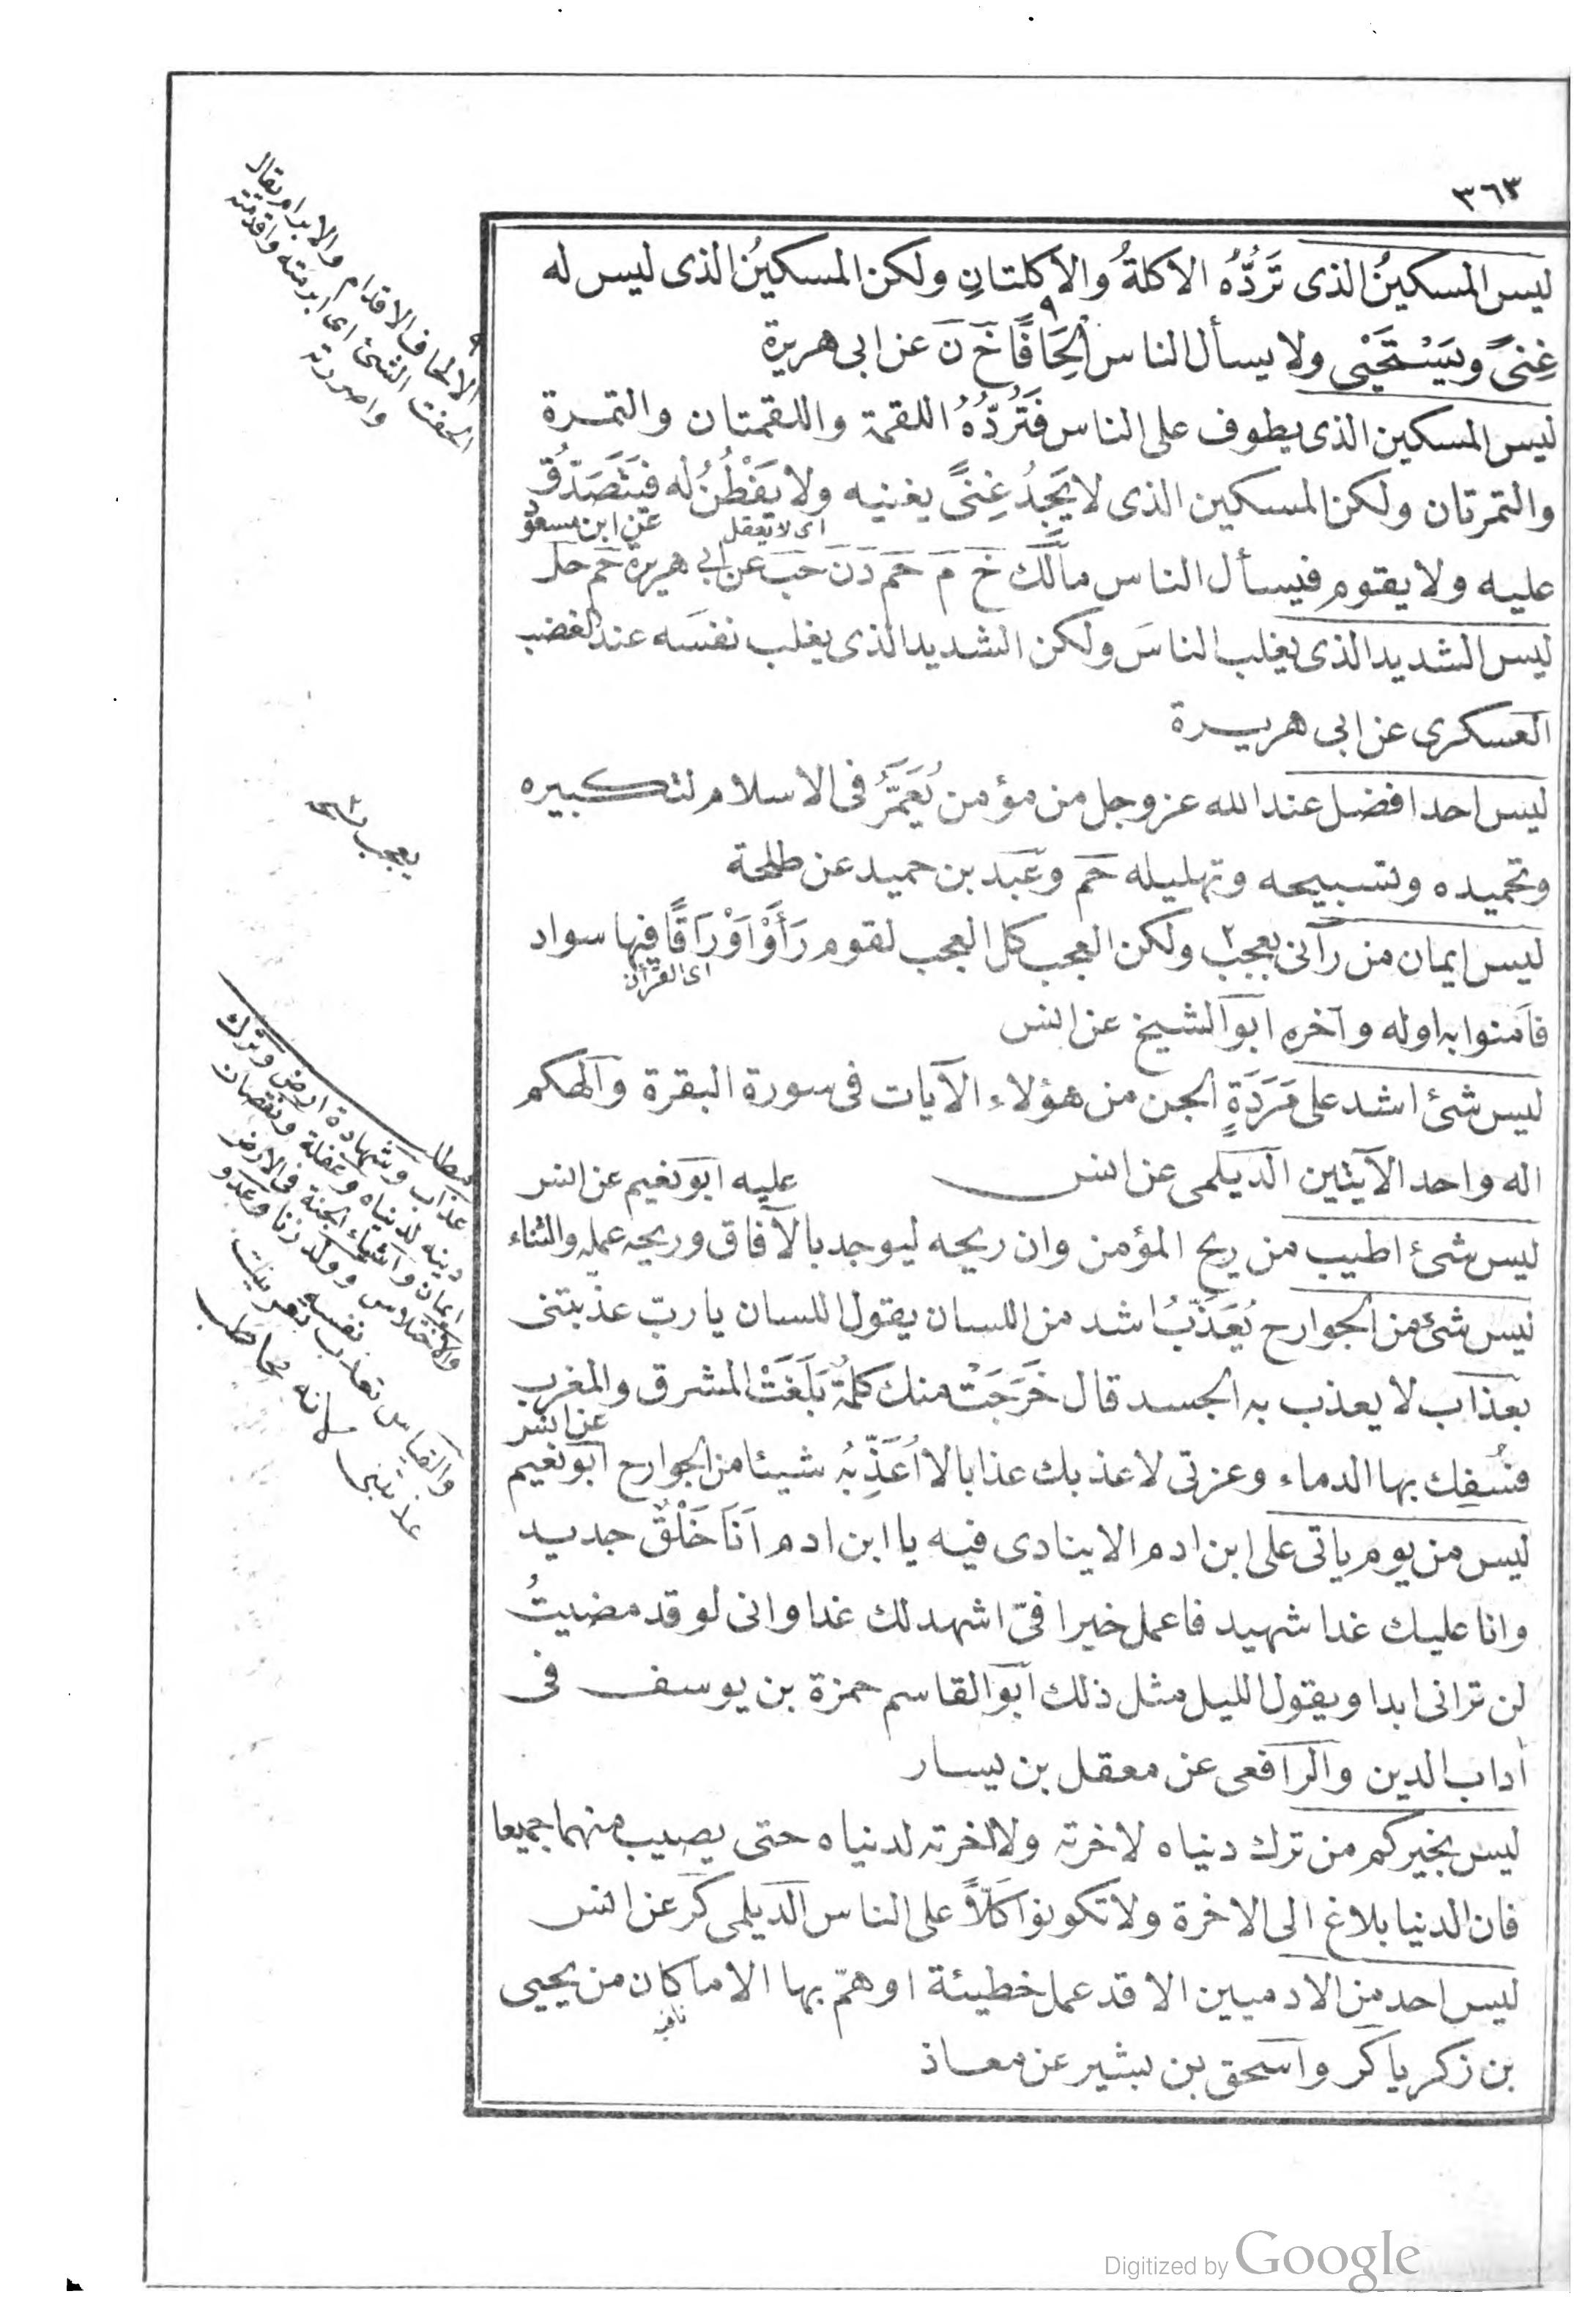 ٣٦٣
ليس المسكينُ الذى تَرُدُّهُ الاكلةُ والاكلتانِ ولكن المسكينُ الذى ليس له
غِنىً ويَسْتَحْيِى ولا يسأل الناس اِلْحَافًا ٩ خَ نَ عن ابى هريرة
ليس المسكين الذى يطوف على الناس فَتَرُدُّهُ اللقمة واللقمتان والتمرة
والتمرتان ولكن المسكين الذى لا يَجِدُ غِنىً يغنيه ولا يَفْطُنُ له فيَتَصَدَّقُ
اى لا يعقل
عن ابن مسعود
عليه ولا يقوم فيسأل الناس مالك خ م حم د ن حب عن ابى هريرة حم حل
ليس الشديد الذى يغلب الناسَ ولكن الشديد الذى يغلب نفسَه عند الغضب
العسكرى عن ابى هريرة
ليس احد افضل عند الله عز وجل من مؤمن يُعَمَّرُ فى الاسلام لتكبيره
وتحميده وتسبيحه وتهليله حم وعبد بن حميد عن طلحة
ليس ايمان من رآنى بعجب ٢ ولكن العجب كل العجب لقوم رَأَوْا اَوْرَاقًا فيها سواد
اى القرآن
فآمنوا به اوله وآخره ابو الشيخ عن انس
ليس شئ اشد على مَرَدَةِ الجن من هؤلاء الآيات فى سورة البقرة والهكم
اله واحد الآيتين الديلمى عن انس
عليه ابو نعيم عن انس
ليس شئ اطيب من ريح المؤمن وان ريحه ليوجد بالآفاق وريحه عمله والثناء
ليس شئ من الجوارح يُعَذَّبُ اشد من اللسان يقول اللسان يا رب عذبتنى
بعذاب لا يعذب به الجسد قال خَرَجَتْ منك كلمةٌ بَلَغَتْ المشرق والمغرب
عن انس
فسُفِك بها الدماء وعزتى لاعذبك عذابا لا اُعَذِّبُه شيئا من الجوارح ابو نعيم
ليس من يوم ياتى على ابن ادم الا ينادى فيه يا ابن ادم اَنَا خَلْقٌ جديد
وانا عليك غدا شهيد فاعمل خيرا فىّ اشهد لك غدا وانى لو قد مضيتُ
لن ترانى ابدا ويقول الليل مثل ذلك ابو القاسم حمزة بن يوسف فى
اداب الدين والرافعى عن معقل بن يسار
ليس بخيركم من ترك دنياه لاخرته ولا اخرته لدنياه حتى يصيب منهما جميعا
فان الدنيا بلاغ الى الاخرة ولا تكونوا كَلًّا على الناس الديلمى كر عن انس
ليس احد من الادميين الا قد عمل خطيئة او همّ بها الا ما كان من يحيى
بن زكريا كر واسحق بن بشير عن معاذ
الالحاف الاقدام والابرام يقال
الحفت الشئ اى ابرمته واقدمته
واصررته
عذاب وشهادة ارض وترك
دينه لدنياه وغفلة ونقصان
ايمان واشياء الجنة فى الارض
Digitized by Google